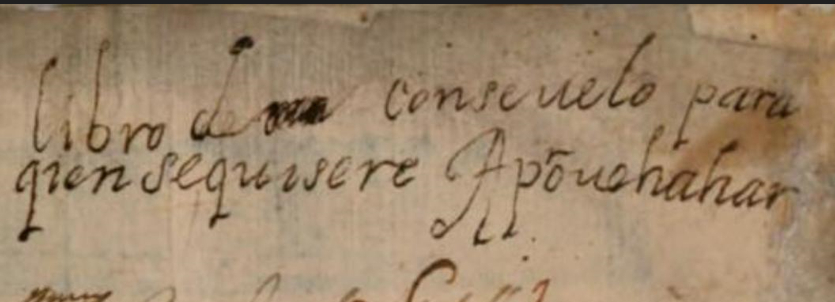 libro de consevelo para
qien sequisere Apõvehahar